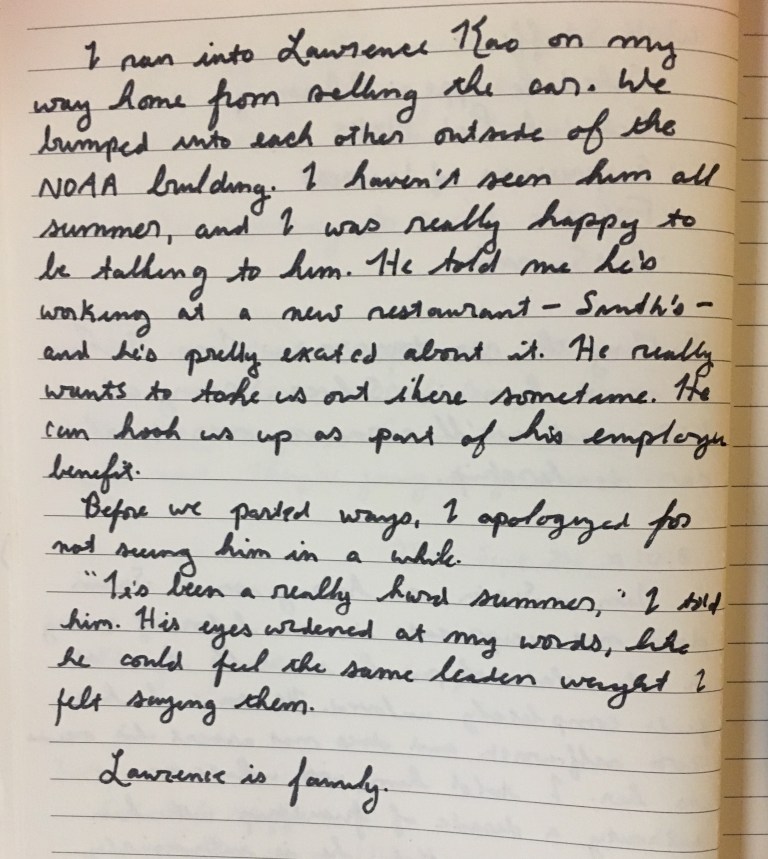 I ran into Lawrence Kao on my
way home from selling the car. We
bumped into each other outside of the
NOAA building. I haven't seen him all
summer, and I was really happy to
be talking to him. He told me he's
working at a new restaurant – Smith's –
and he's pretty excited about it. He really
wants to take us out there sometime. He
can hook us up as part of his employee
benefit.
Before we parted ways, I apologized for
not seeing him in a while.
"It's been a really hard summer," I told
him. His eyes widened at my words, like
he could feel the same leaden weight I
felt saying them.
Lawrence is family.